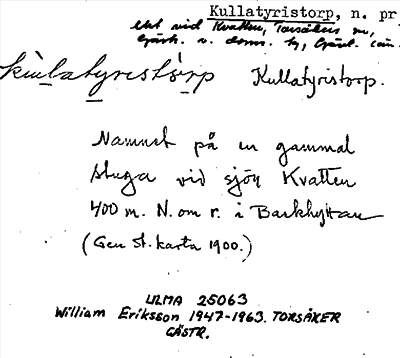 Kullatyristorp, n. pr.
ent vid Kvatten, Torsåkers sn,
Gästr. ö. doms. h, Gävl. län.
kùlatyristórp Kullatyristorp.
Namnet på en gammal
stuga vid sjön Kvatten
400 m. N. om r. i Barkhyttan
(Gen st. karta 1900.)
ULMA 25063
William Eriksson 1947-1963. TORSÅKER
GÄSTR.